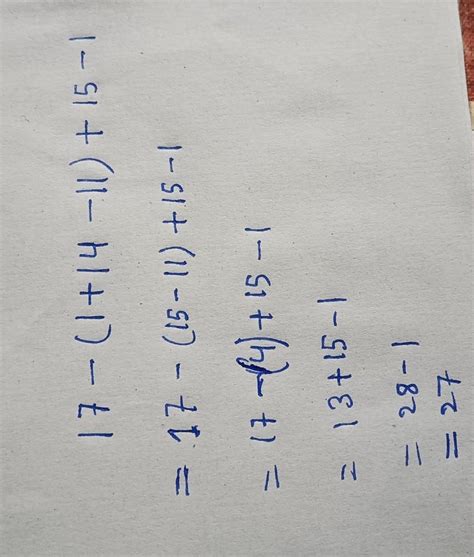 17 - (1 + 14 - 11) + 15 - 1
= 17 - (15 - 11) + 15 - 1
= 17 - (4) + 15 - 1
= 13 + 15 - 1
= 28 - 1
= 27